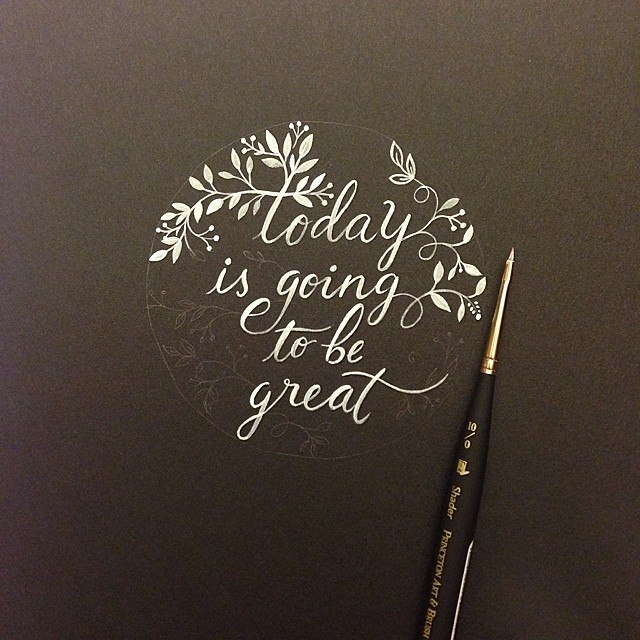 today
is going
to be
great
10/0
Shader
PRINCETON ART & BRUSH